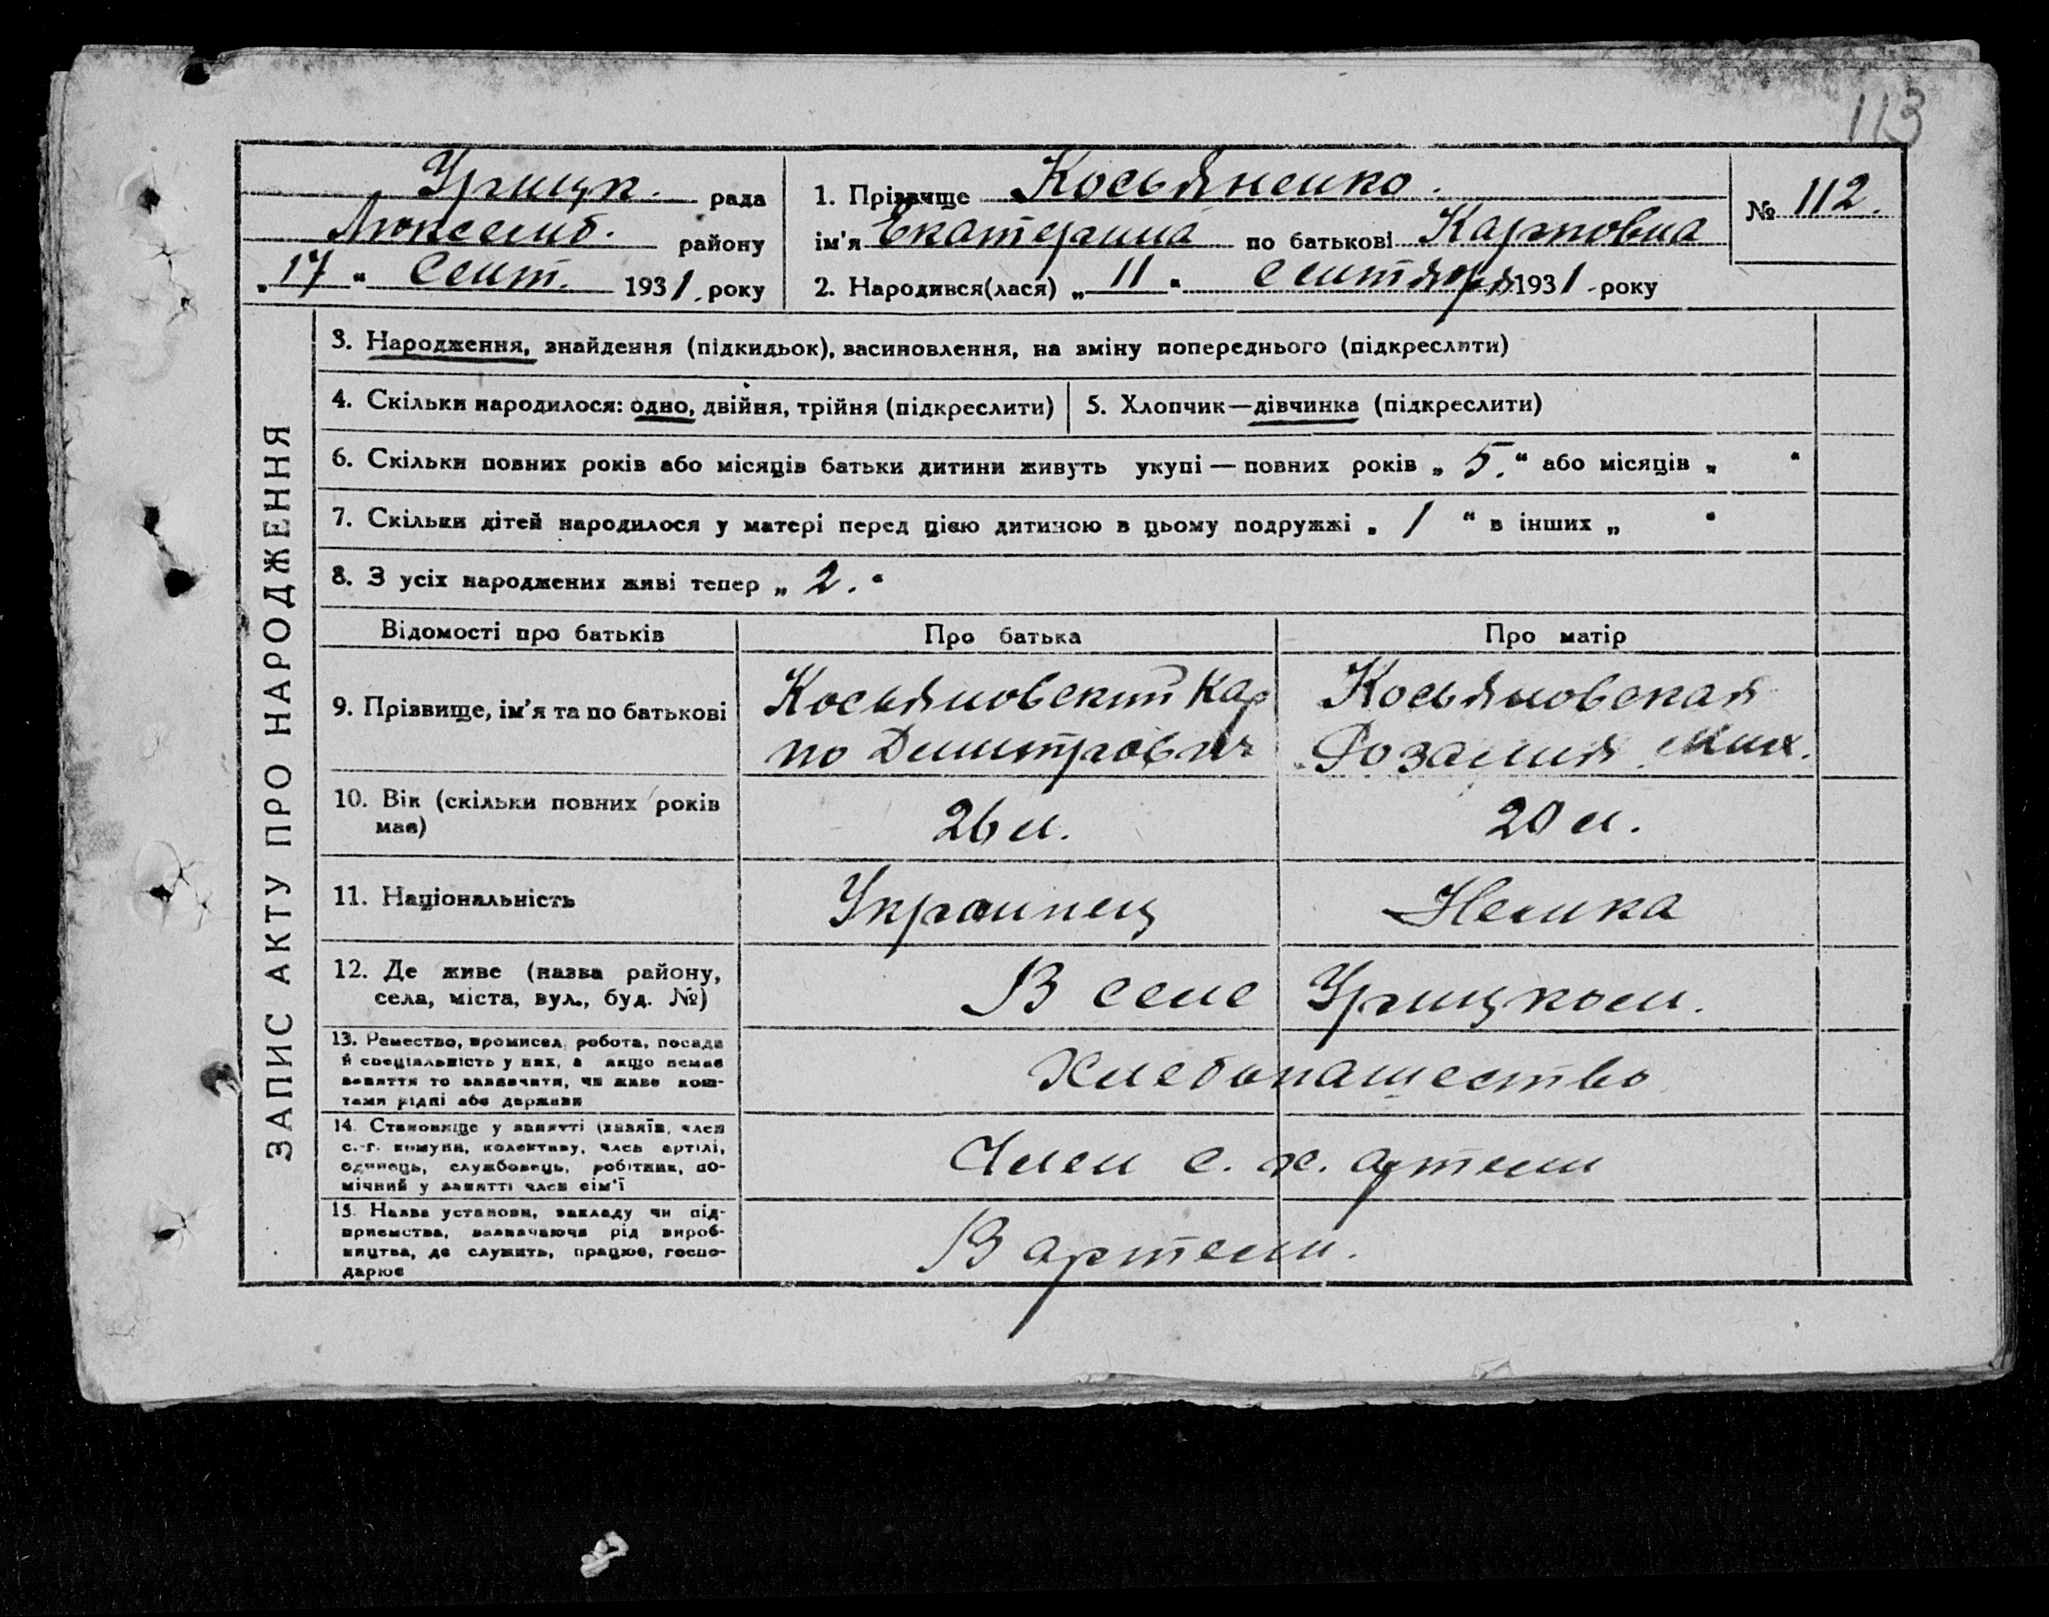 113
Урицк. рада
Люксемб. району
„17“ Сент. 1931 року
1. Прізвище Косьяненко.
ім'я Екатерина по батькові Карповна
2. Народився(лася) „11“ Сентября 1931 року
№ 112.
ЗАПИС АКТУ ПРО НАРОДЖЕННЯ
3. Народження, знайдення (підкидьок), васиновлення, на зміну попереднього (підкреслити)
4. Скільки народилося: одно, двійня, трійня (підкреслити)
5. Хлопчик—дівчинка (підкреслити)
6. Скільки повних років або місяців батьки дитини живуть укупі — повних років „5.“ або місяців „ “
7. Скільки дітей народилося у матері перед цією дитиною в цьому подружжі „1“ в інших „ “
8. З усіх народжених живі тепер „2.“
Відомості про батьків
Про батька
Про матір
9. Прізвище, ім'я та по батькові
Косьяновский Кар
по Димитрович
Косьяновская
Розалия Мих.
10. Вік (скільки повних років
має)
26 л.
20 л.
11. Національність
Украинец
Немка
12. Де живе (назва району,
села, міста, вул., буд. №)
В селе Урицком.
13. Ремество, промисел, робота, посада
й спеціальність у них, а якщо немає
заняття то зазначити, чи живе кош-
тами рідні або держави
Хлебопашество
14. Становище у занятті (хазяїн, член
с.-г. комуни, колективу, член артілі,
одинець, службовець, робітник, по-
мічний у занятті член сім'ї
Член с. х. артели
15. Назва установи, закладу чи під-
приємства, зазначаючи рід вироб-
ництва, де служить, працює, госпо-
дарює
В артели.